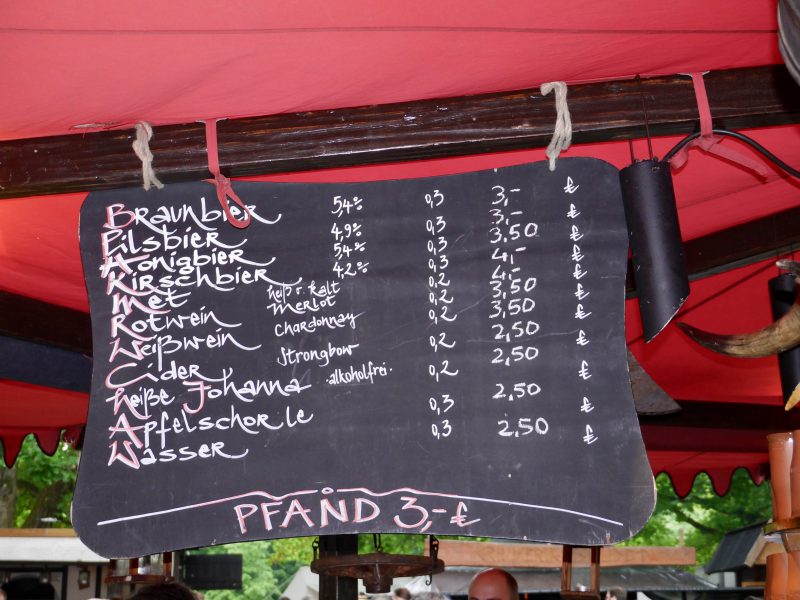 Braunbier 5,4% 0,3 3,- €
Pilsbier 4,9% 0,3 3,- €
Honigbier 5,4% 0,3 3,50 €
Kirschbier 4,2% 0,3 4,- €
Met heiß o. kalt 0,2 4,- €
Rotwein Merlot 0,2 3,50 €
Weißwein Chardonnay 0,2 3,50 €
Cider Strongbow 0,2 2,50 €
heiße Johanna .alkoholfrei. 0,2 2,50 €
Apfelschorle 0,3 2,50 €
Wasser 0,3 2,50 €
PFAND 3,- €